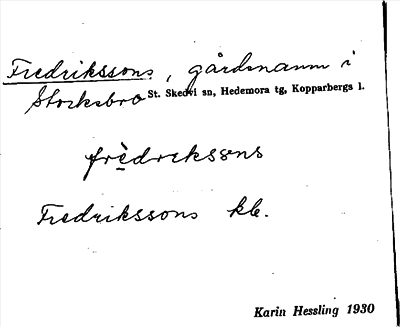 Fredrikssons, gårdsnamn i
Storhsbro St. Skedvi sn, Hedemora tg, Kopparbergs l.
frèdrekssɵns
Fredrikssons kb.
Karin Hessling 1930